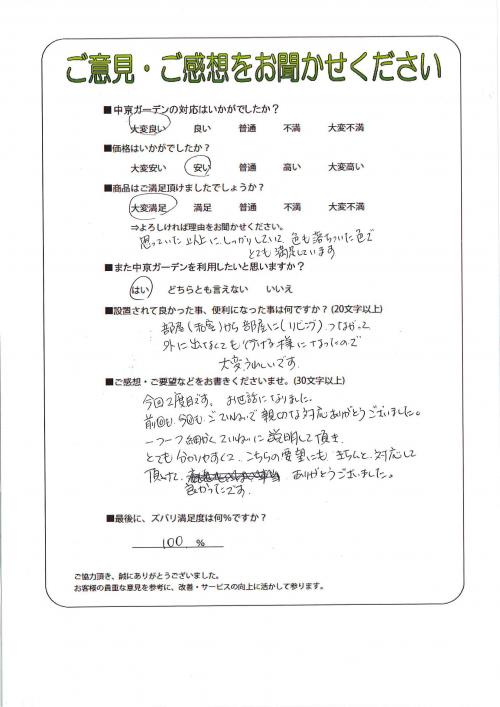 ご意見・ご感想をお聞かせください
■中京ガーデンの対応はいかがでしたか？
大変良い　良い　普通　不満　大変不満
■価格はいかがでしたか？
大変安い　安い　普通　高い　大変高い
■商品はご満足頂けましたでしょうか？
大変満足　満足　普通　不満　大変不満
⇒よろしければ理由をお聞かせください。
思っていた以上に、しっかりしていて、色も落ちついた色で
とても満足しています
■また中京ガーデンを利用したいと思いますか？
はい　どちらとも言えない　いいえ
■設置されて良かった事、便利になった事は何ですか？(20文字以上)
部屋(和室)から部屋に(リビング)つながって
外に出なくても行ける様になったので
大変うれしいです。
■ご感想・ご要望などをお書きくださいませ。(30文字以上)
今回2度目です。お世話になりました。
前回も今回もごていねいで親切な対応ありがとうございました。
一つ一つ細かくていねいに説明して頂き、
とても分かりやすくて、こちらの要望にもきちんと対応して
頂けて、ありがとうございました。
良かったです。
■最後に、ズバリ満足度は何%ですか？
100 %
ご協力頂き、誠にありがとうございました。
お客様の貴重な意見を参考に、改善・サービスの向上に活かして参ります。